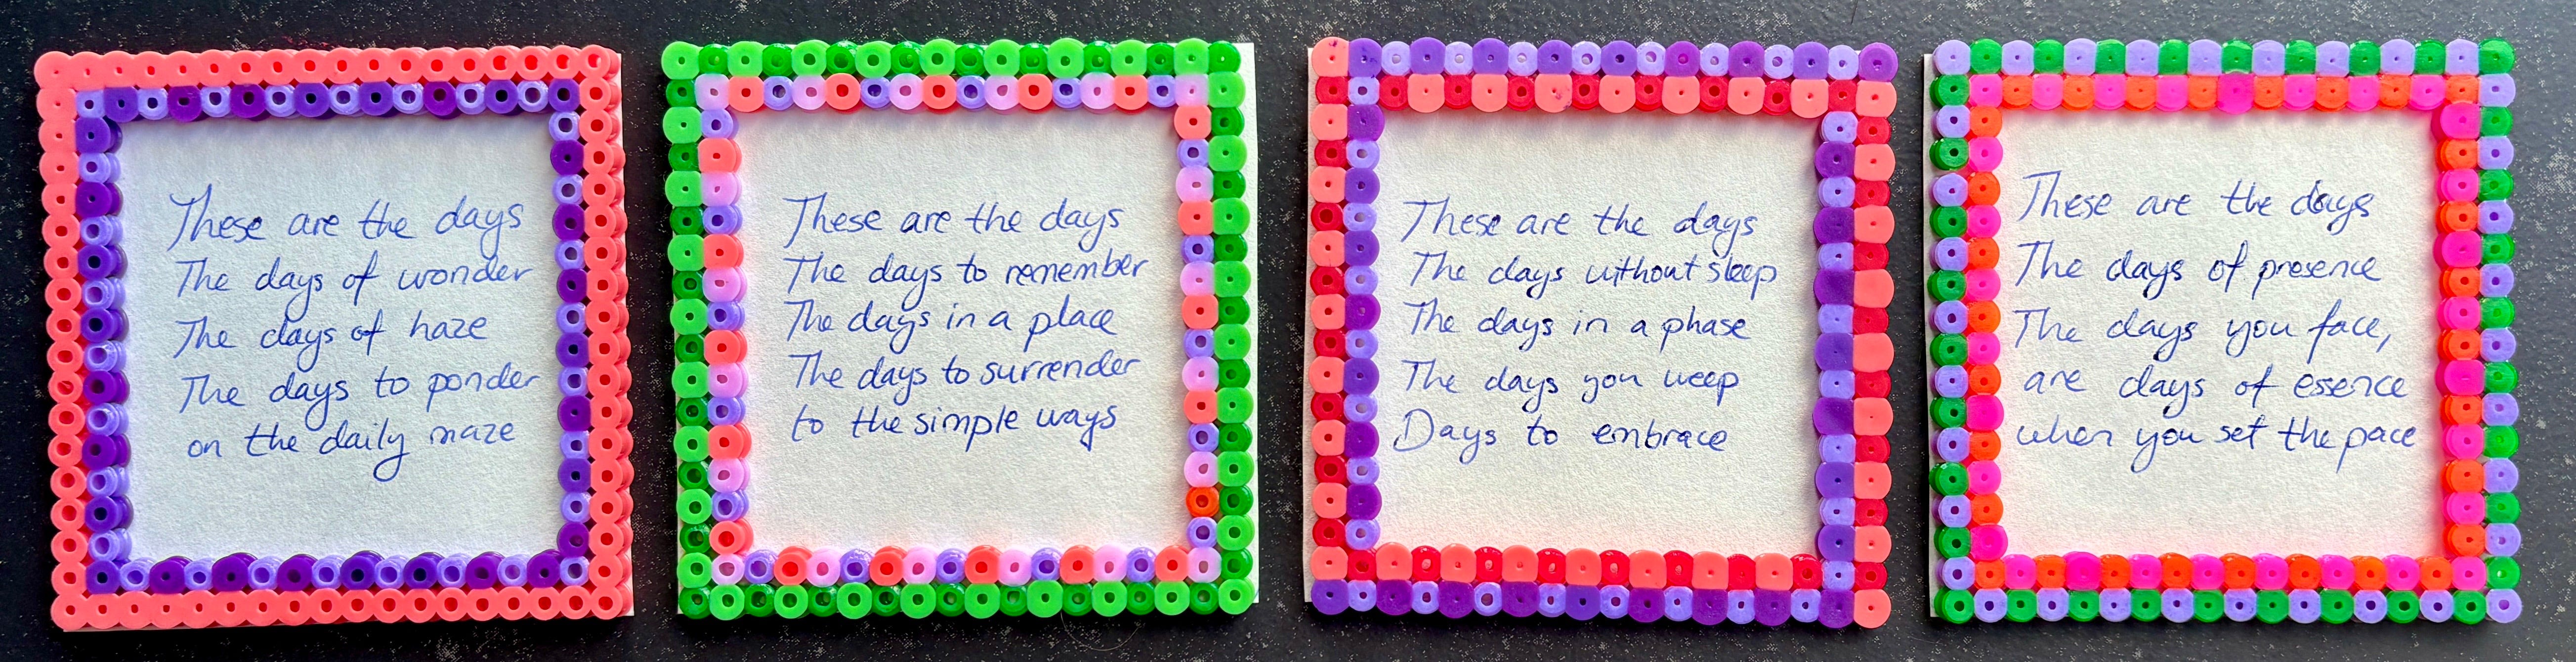 These are the days
The days of wonder
The days of haze
The days to ponder
on the daily maze
These are the days
The days to remember
The days in a place
The days to surrender
to the simple ways
These are the days
The days without sleep
The days in a phase
The days you weep
Days to embrace
These are the days
The days of presence
The days you face,
are days of essence
when you set the pace